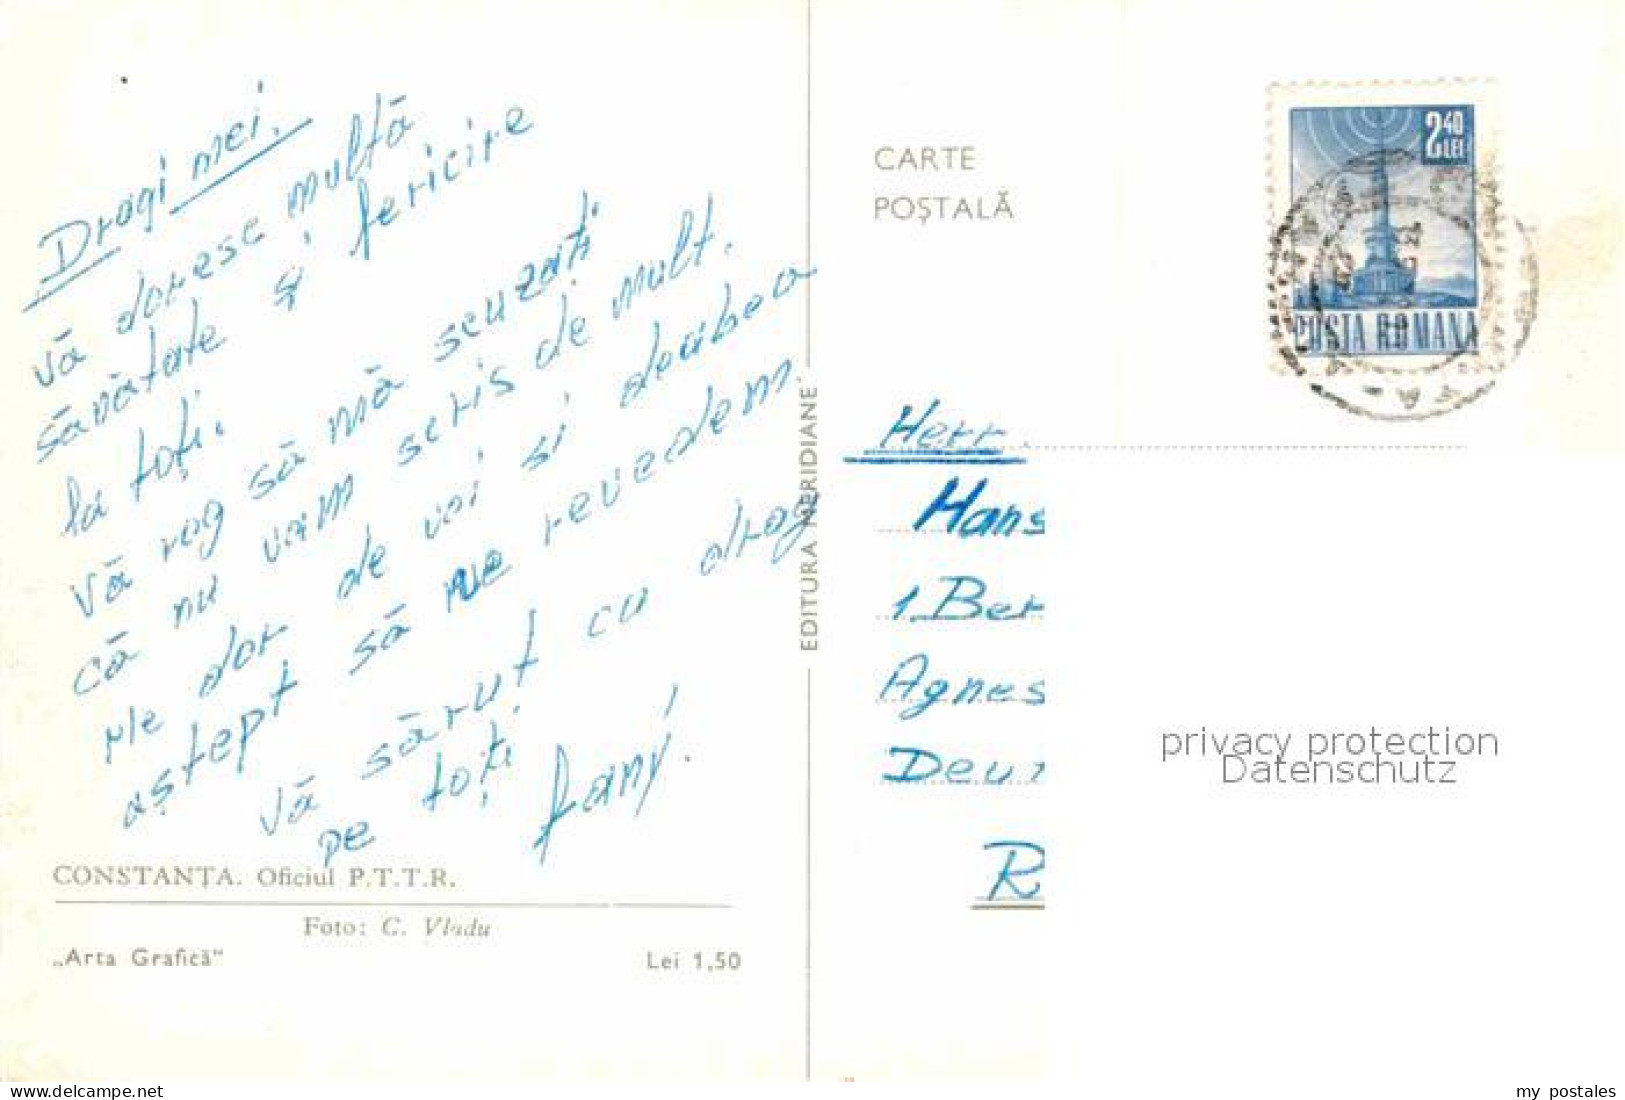 Dragi mei.
vă doresc multă
sănătate și fericire
la toți.
Vă rog să mă scuzați
că nu vam scris de mult.
Me dor de voi si deabea
aștept să ne revedem.
Vă sărut cu drag
pe toți
fany.
CONSTANȚA. Oficiul P.T.T.R.
Foto: C. Vladu
„Arta Grafică“
Lei 1,50
EDITURA MERIDIANE
CARTE
POȘTALĂ
2 40
LEI
POSTA ROMANA
Herr.
Hans
1. Ber
Agnes
Deu
R
privacy protection
Datenschutz
delcampe.net
my_postales